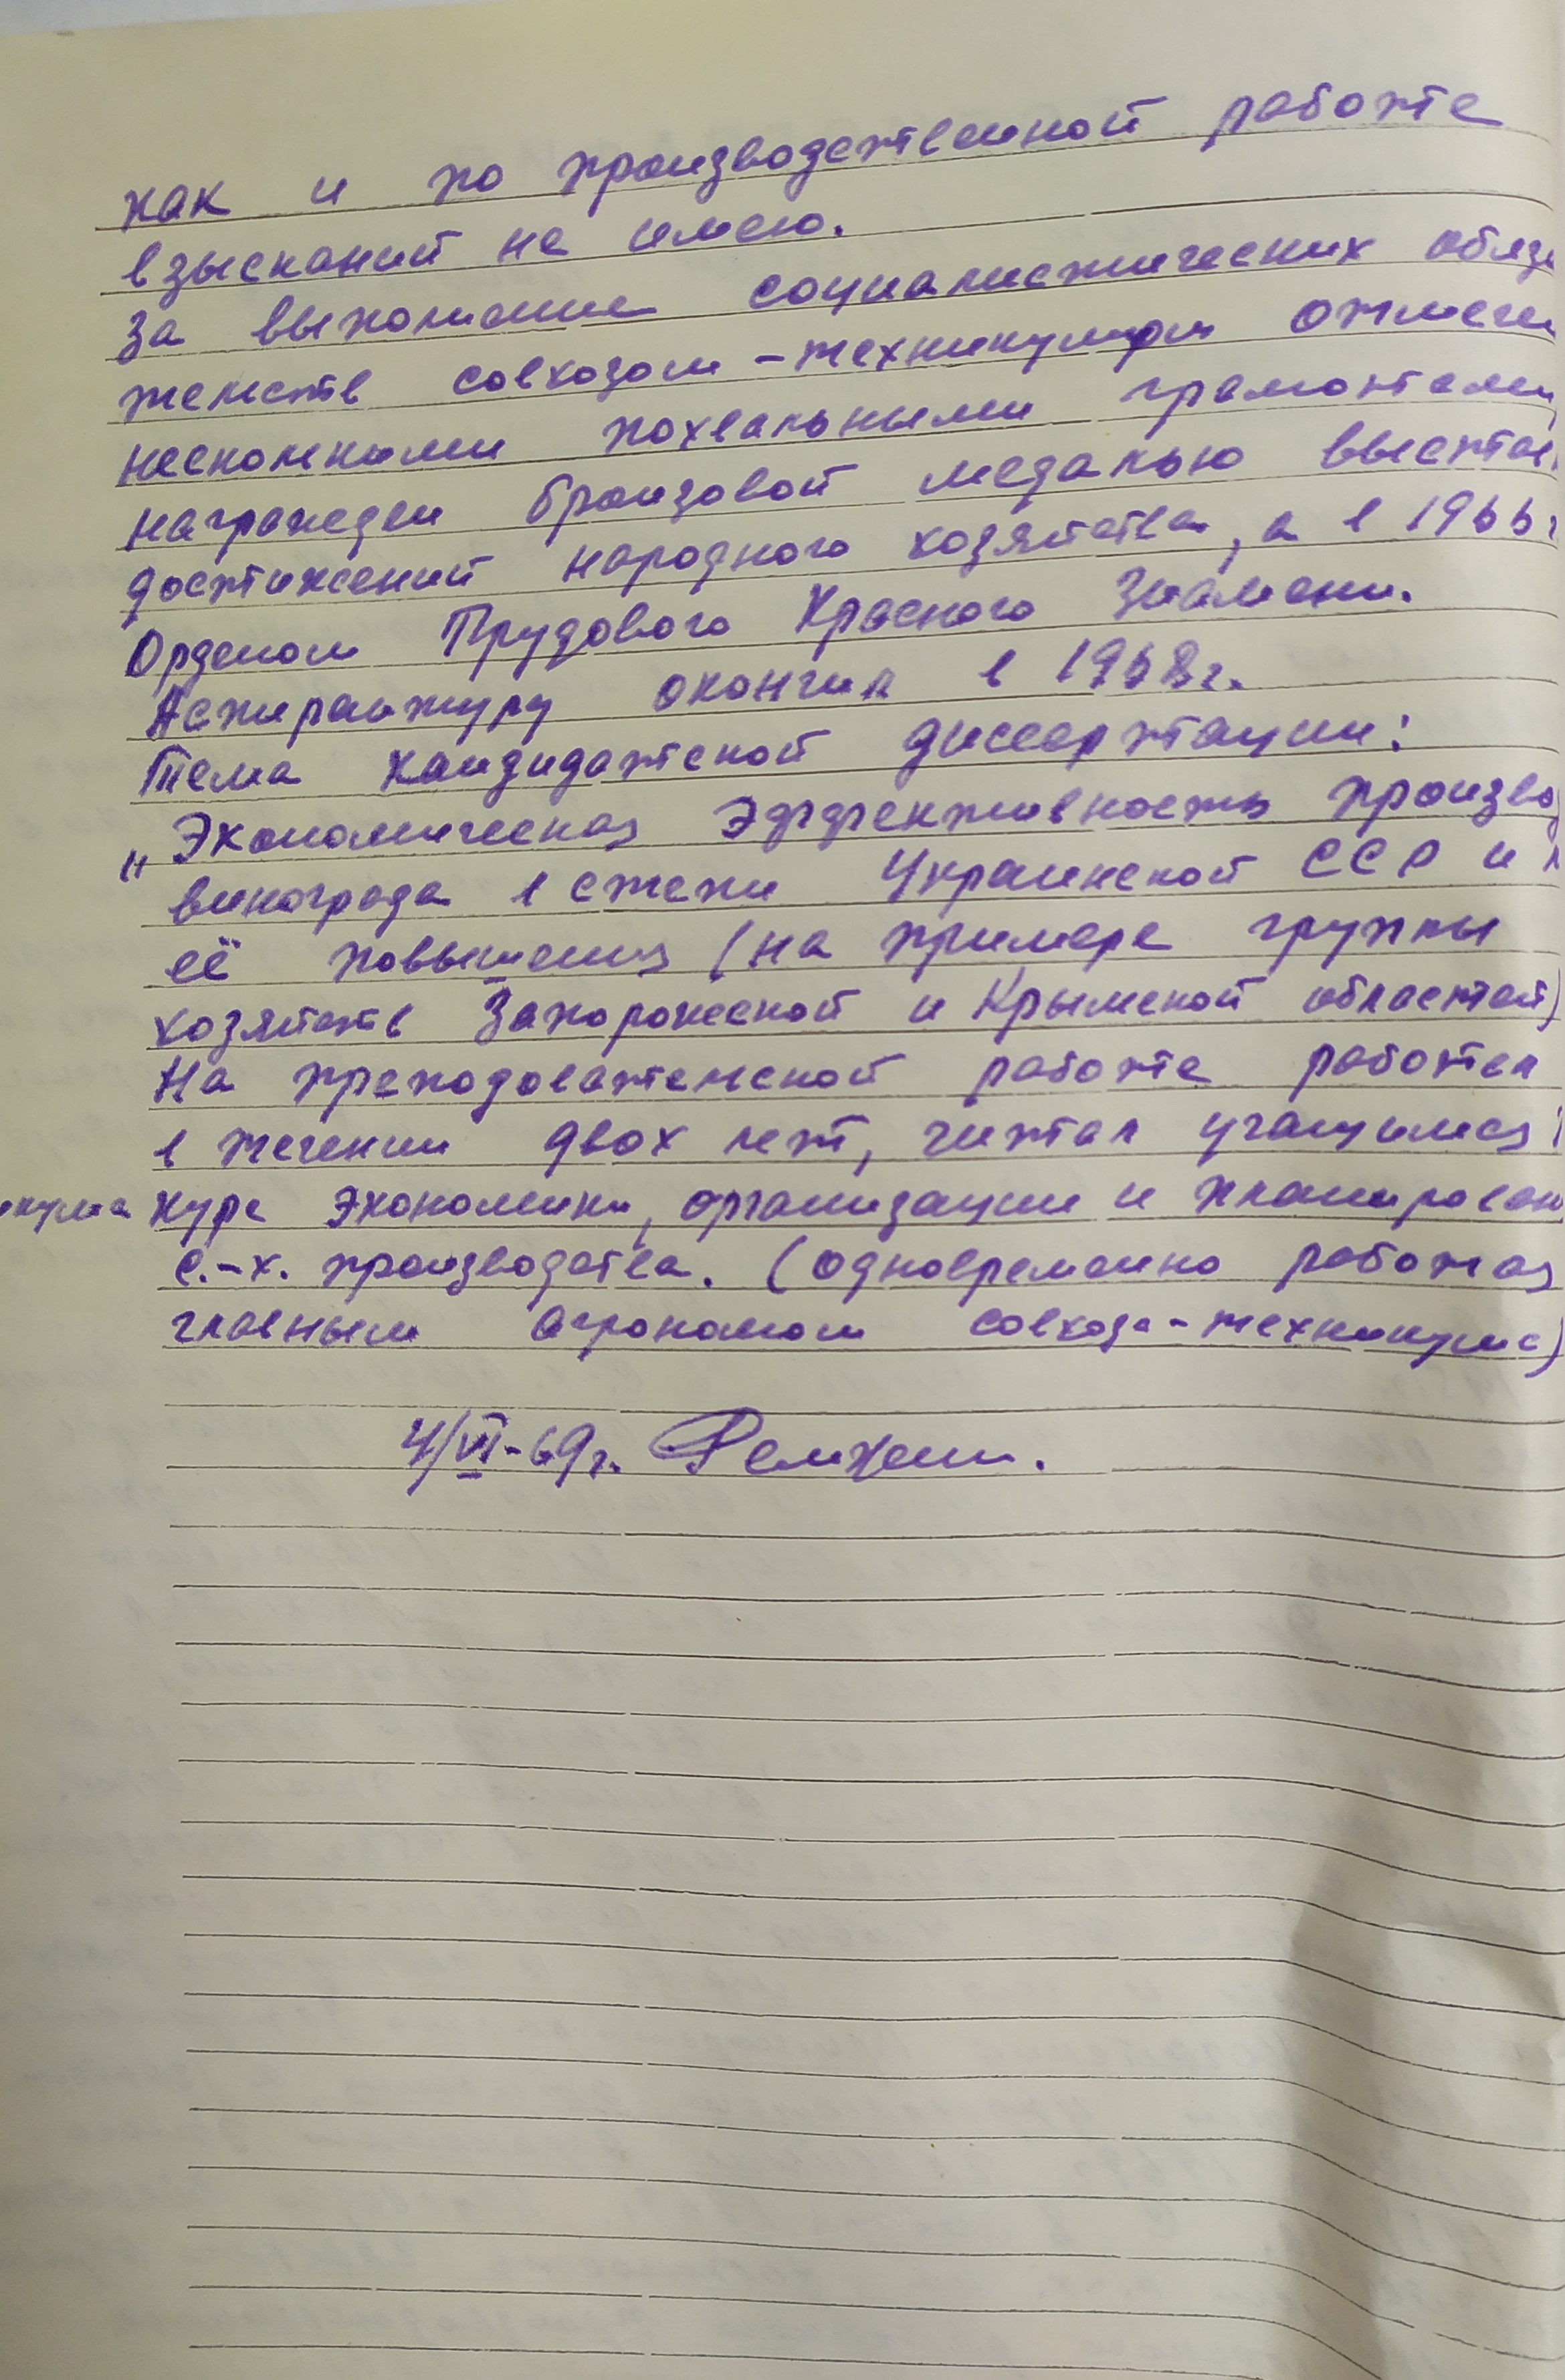 как и по производственной работе
взысканий не имею.
За выполнение социалистических обяза
тельств совхозом-техникумом отмечен
несколькими похвальными грамотами,
награжден бронзовой медалью выстав
достижений народного хозяйства, а в 1966г
Орденом Трудового Красного Знамени.
Аспирантуру окончил в 1968г.
Тема кандидатской диссертации:
„Экономическая эффективность произво
винограда в степи Украинской ССР и п
её повышения (на примере группы
хозяйств Запорожской и Крымской областей)
На преподавательской работе работал
в течении двох лет, читал учащимся
икума курс экономики, организации и планирован
с.-х. производства. (одновременно работая
главным агрономом совхоза-техникума)
4/VI-69г.